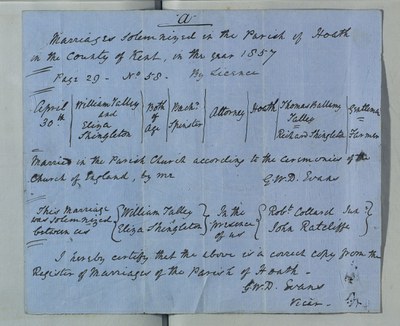 "A"
Marriages solemnized in the Parish of Hoath
in the County of Kent, in the year 1857
Page 29 - No 58. By Licence
April 30th William Talley and Eliza Shingleton Both of Age Bachr Spinster Attorney Hoath Thomas Bellamy Talley Richard Shingleton Gentleman Farmer
Married in the Parish Church according to the Ceremonies of the
Church of England, by me
G.W.D. Evans
This Marriage was solemnized between us William Talley Eliza Shingleton In the presence of us Robt Collard Junr John Ratcliffe
I hereby certify that the above is a correct copy from the
Register of Marriages of the Parish of Hoath -
G.W.D. Evans
Vicar.